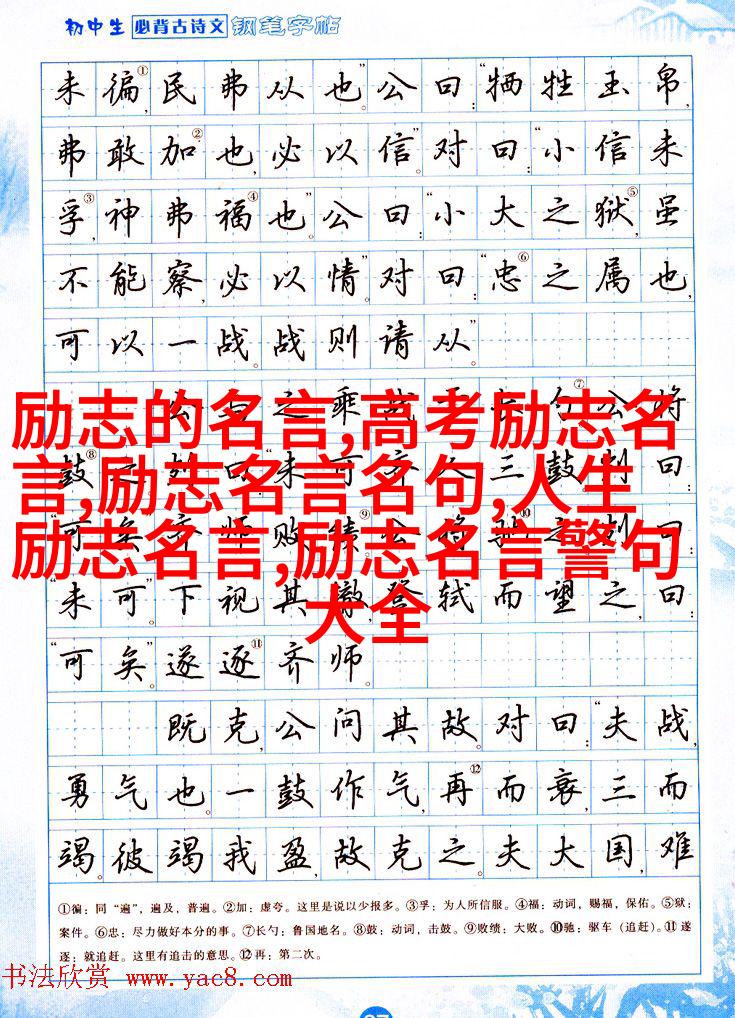 初中生 必背古诗文 钢笔字帖
未徧①,民弗从也。”公曰:“牺牲玉帛,
弗敢加②也,必以信。”对曰:“小信未
孚③,神弗福④也。”公曰:“小大之狱⑤,虽
不能察,必以情。”对曰:“忠⑥之属也,
可以一战。战则请从。”
公与之乘 ⑦公将
励志的名言,高考励志名
鼓⑧ 曰 三鼓 曰:
言,励志名言名句,人生
可矣 齐师败绩⑨公将驰⑩之刿曰:
励志名言,励志名言警句
“未可。”下视其辙,登轼而望之,曰:
大全
“可矣。”遂逐⑪齐师。
既克,公问其故。对曰:“夫战,
勇气也。一鼓作气,再⑫而衰,三而
竭。彼竭我盈,故克之。夫大国,难
①徧:同“遍”,遍及,普遍。②加:虚夸。这里是说以少报多。③孚:为人所信服。④福:动词,赐福,保佑。⑤狱:
案件。⑥忠:尽力做好本分的事。⑦长勺:鲁国地名。⑧鼓:动词,击鼓。⑨败绩:大败。⑩驰:驱车(追赶)。⑪遂
逐:就追赶。这里有追击的意思。⑫再:第二次。
书法欣赏 www.yac8.com